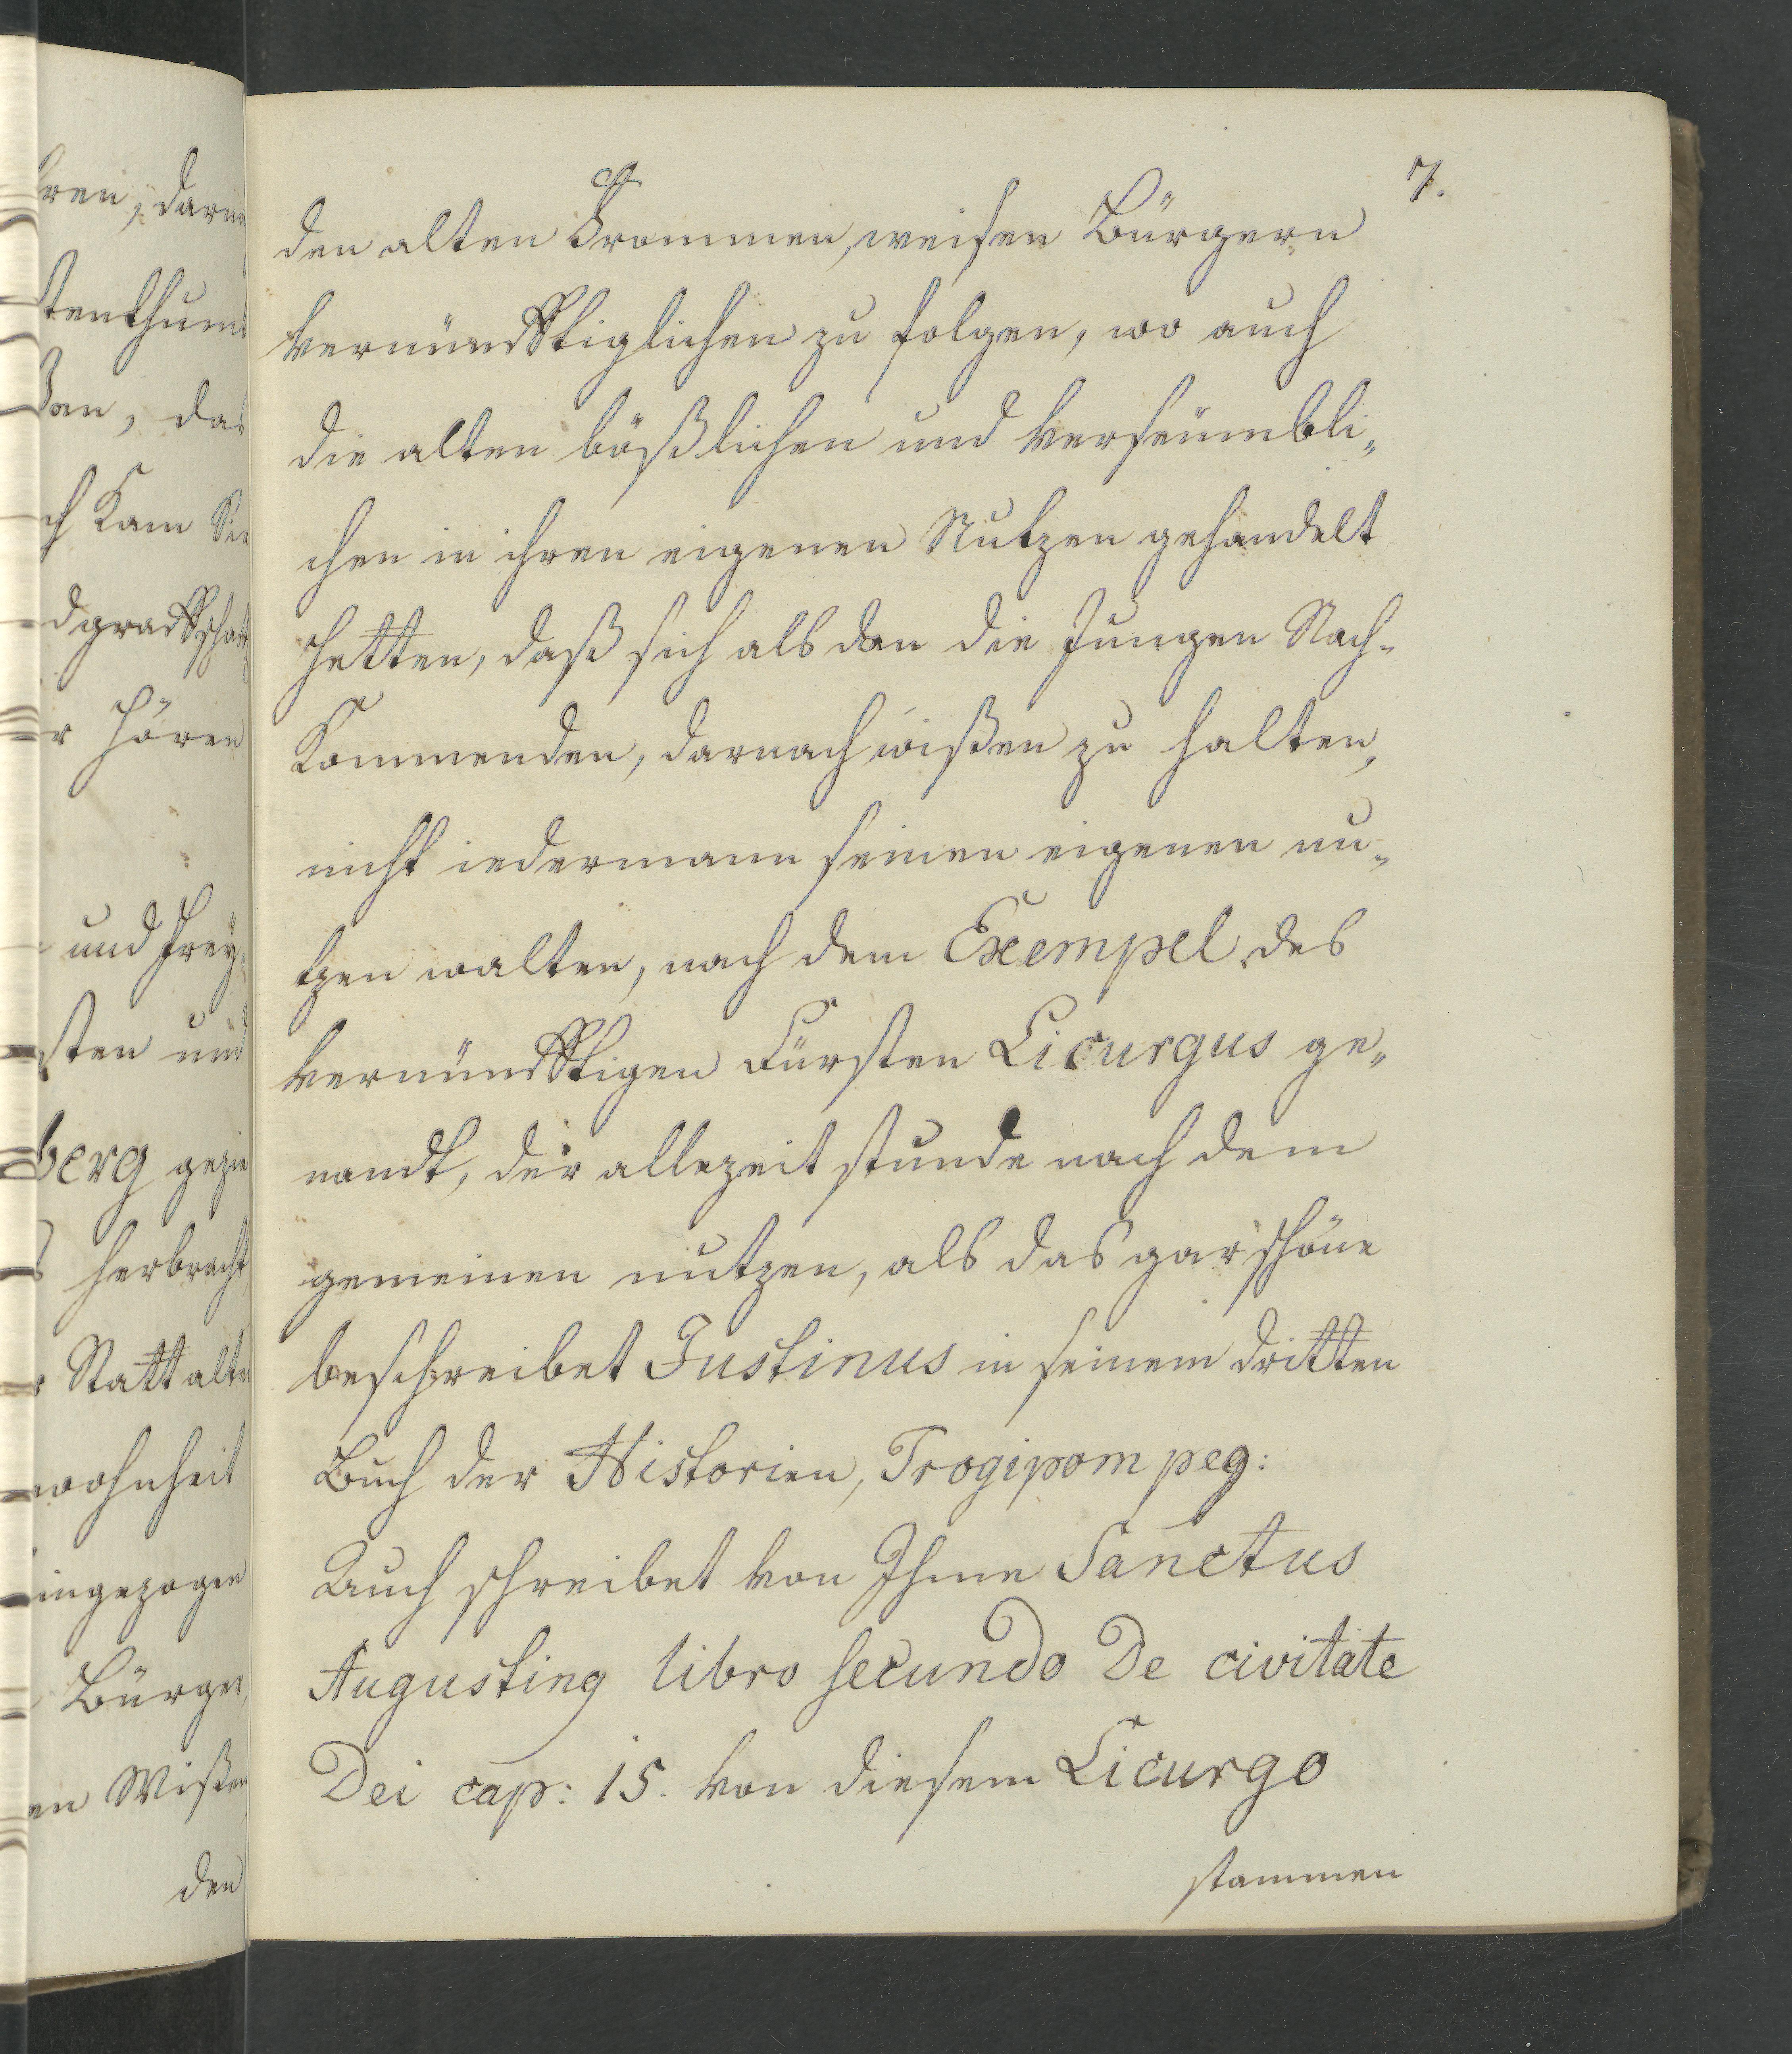 7.
den alten Frommen, weisen Bürgern
vernünfftiglichen zu folgen, wo auch
die alten bößlichen und verseümbli„
chen in ihren eigenen Nutzen gehandelt
hetten, daß sich als dan die Jungen Nach-
Kommenden, darnach wißen zu halten,
nicht iedermann seinen eigenen nu„
tzen walten, nach dem Exempel des
vernünfftigen Fürsten Licurgus ge„
nandt, der allezeit stunde nach dem
gemeinen nutzen, als das gar schöne
beschreibet Justinus in seinem dritten
Buch der Historien, Trogipompeg:
Auch schreibet von Ihme Sanctus
Augusting libro secundo De civitate
Dei cap: 15. von diesem Licurgo
stammen
ren, darn
tenthum
ßen, das
ch Kam Sie
dgraffschafft
r hören
und Frey„
sten und
berg gezie
herbracht
r Statt alte
wohnheit
ingezogen
Bürger
en Wißen
den